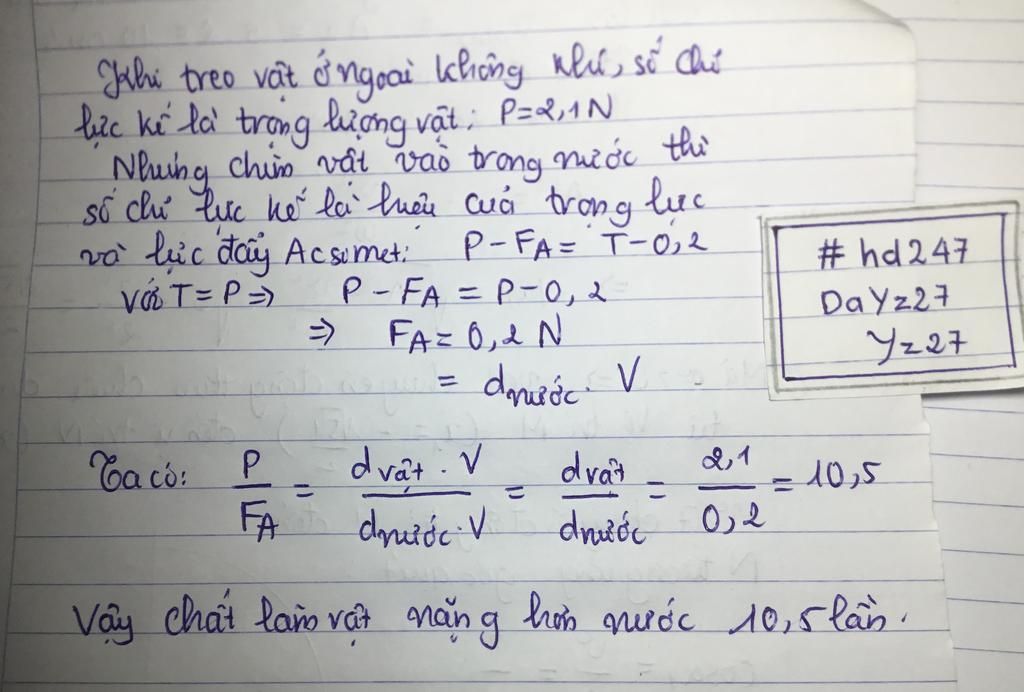 Khi treo vật ở ngoài không khí, số chỉ
lực kế là trọng lượng vật: P=2,1N
Nhúng chìm vật vào trong nước thì
số chỉ lực kế là hiệu của trọng lực
và lực đẩy Acsimet: P-FA = T-0,2
Với T = P => P - FA = P-0,2
=> FA = 0,2 N
= dnước . V
Ta có: P/FA = dvật . V/dnước . V = dvật/dnước = 2,1/0,2 = 10,5
Vậy chất làm vật nặng hơn nước 10,5 lần.
#hd247
DaYz27
Yz27